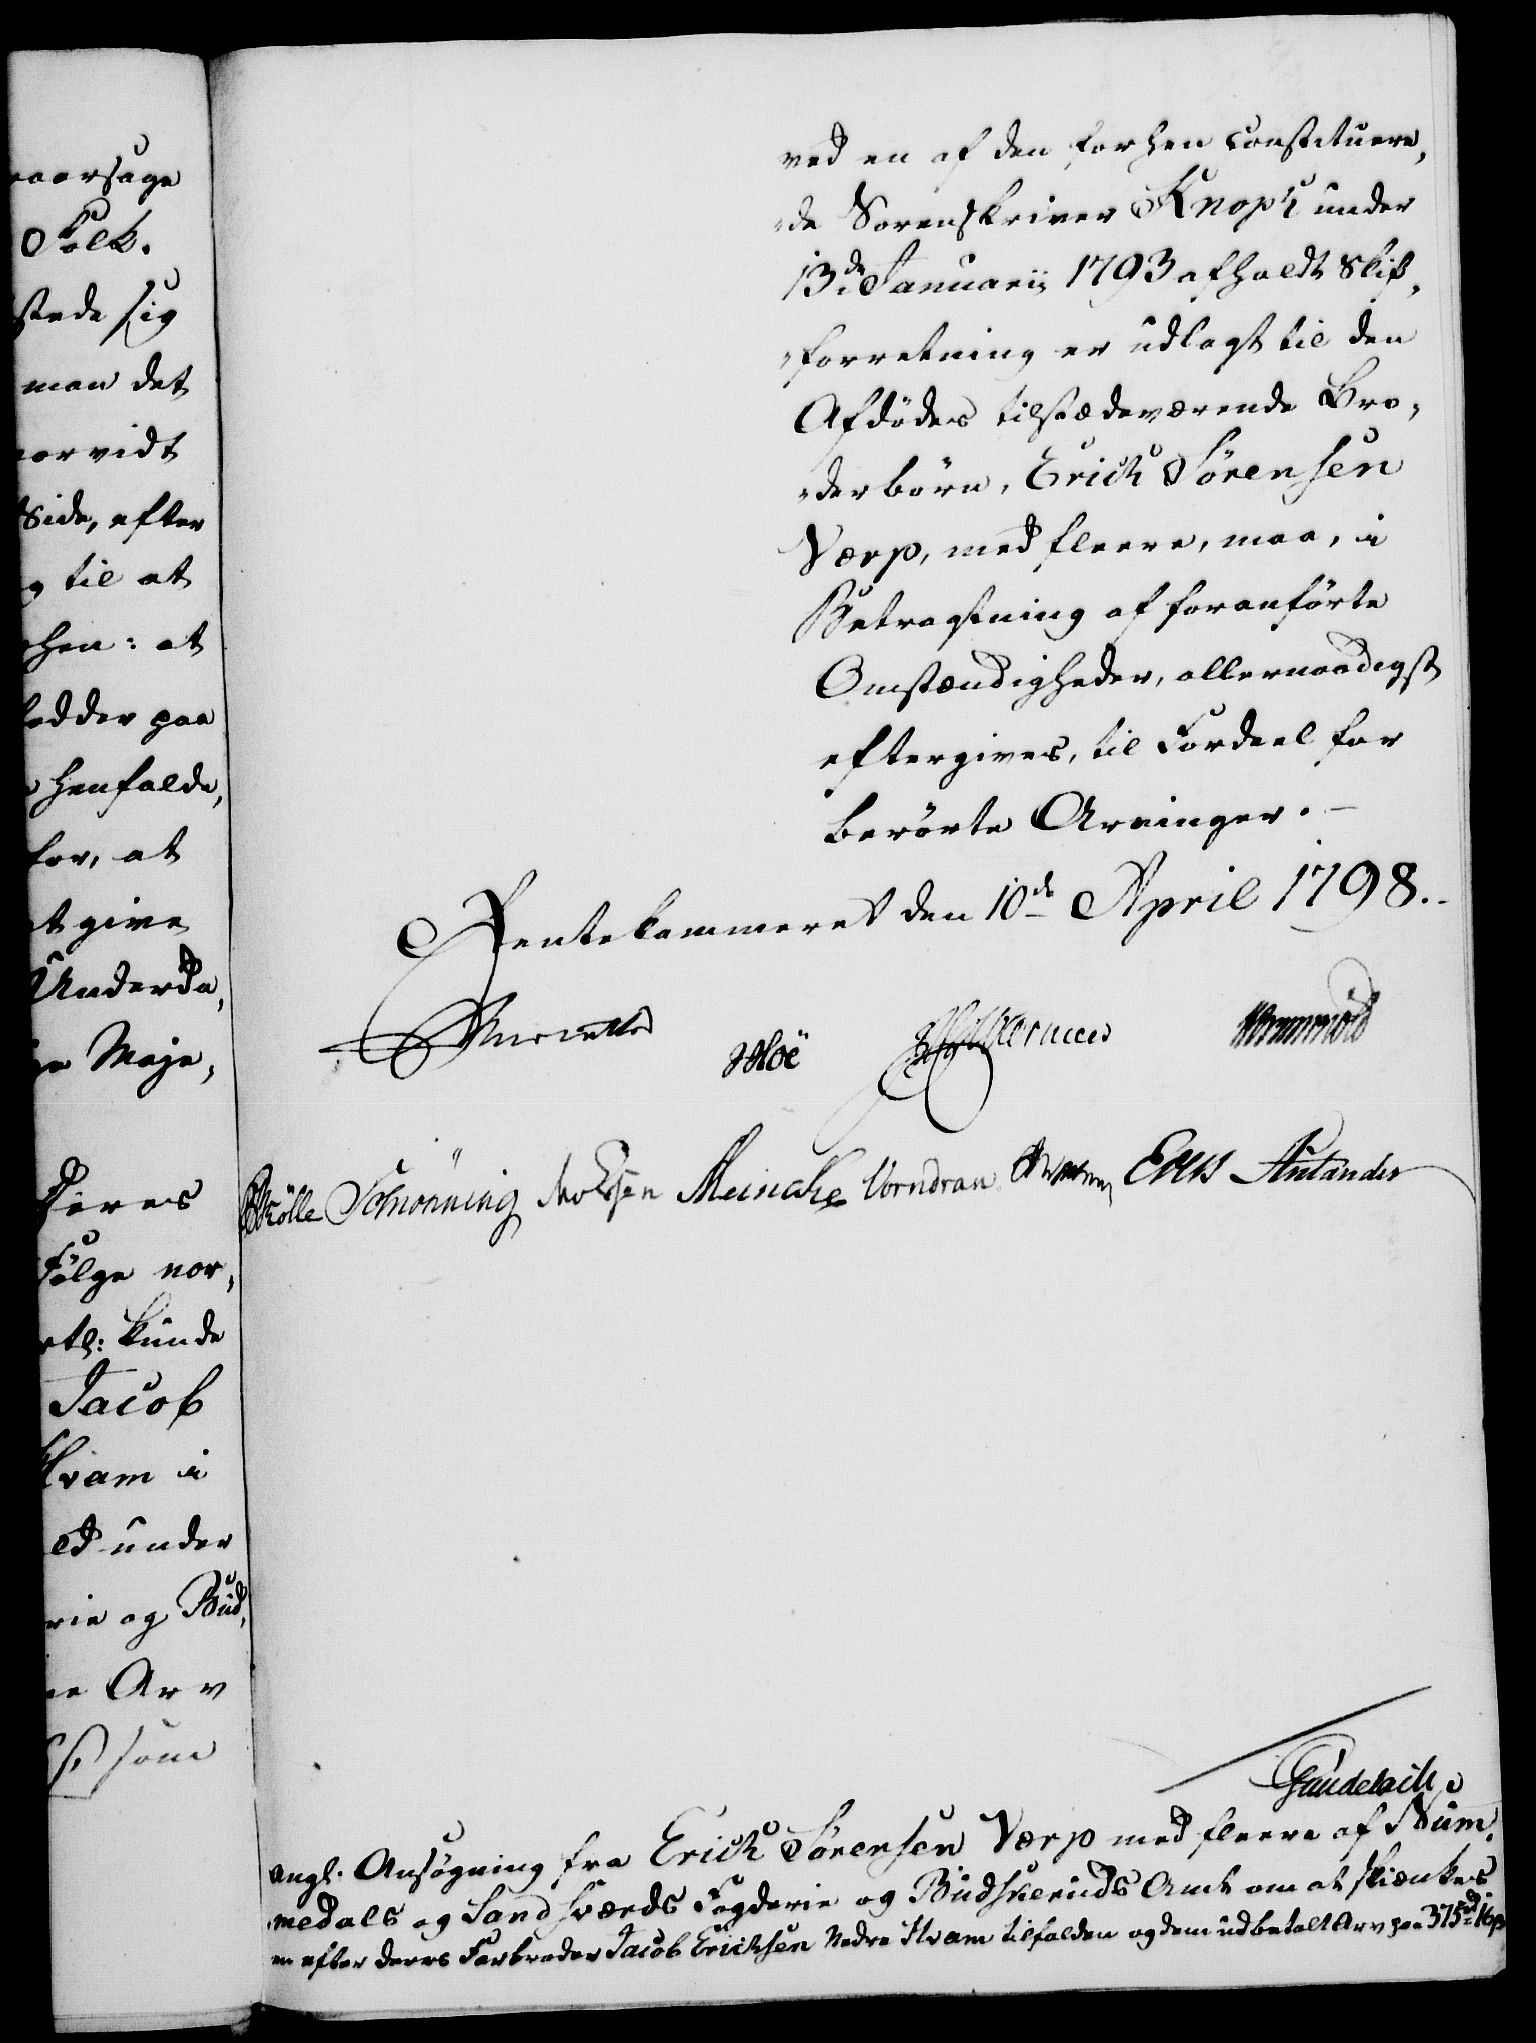 aarsage
Folk.
stede sig
man det
orvidt
Side, efter
g til at
hen: at
fødder paa
henfalde,
for, at
at give
Underda,
Maje,
deres
Følge nor,
kunde
Jacob
Kvam i
ed under
rie og Bud,
Arv
ß som
ved en af den forhen constituere,
"de Sorenskriver Knoph under
13de Januarii 1793 afholdt Skif,
"forretning er udlagt til den
Afdødes tilstædeværende Bro,
"derbørn, Erich Sørensen
Værp, med fleere, maa, i
Betragtning af foranførte
Omstændigheder, allernaadigst
eftergives, til Fordeel for
berørte Arvinger. —
Rentekammeret den 10de April 1798.
Moë
Wormskiold
Kølle Schønning Meincke Vorndran
Gaudelach
angl. Ansøgning fra Erich Sørensen Værp med fleere af Num,
medals og Sandsværds Fogderie og Budskeruds Amt om at skiænkes
en efter deres Farbroder Jacob Erichsen Nedre Kvam tilfalden og dem udbetalt Arv paa 375rd 16ß